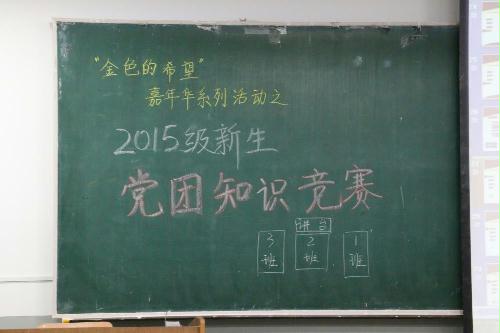 "金色的希望"
嘉年华系列活动之
2015级新生
党团知识竞赛
讲台
3班 2班 1班